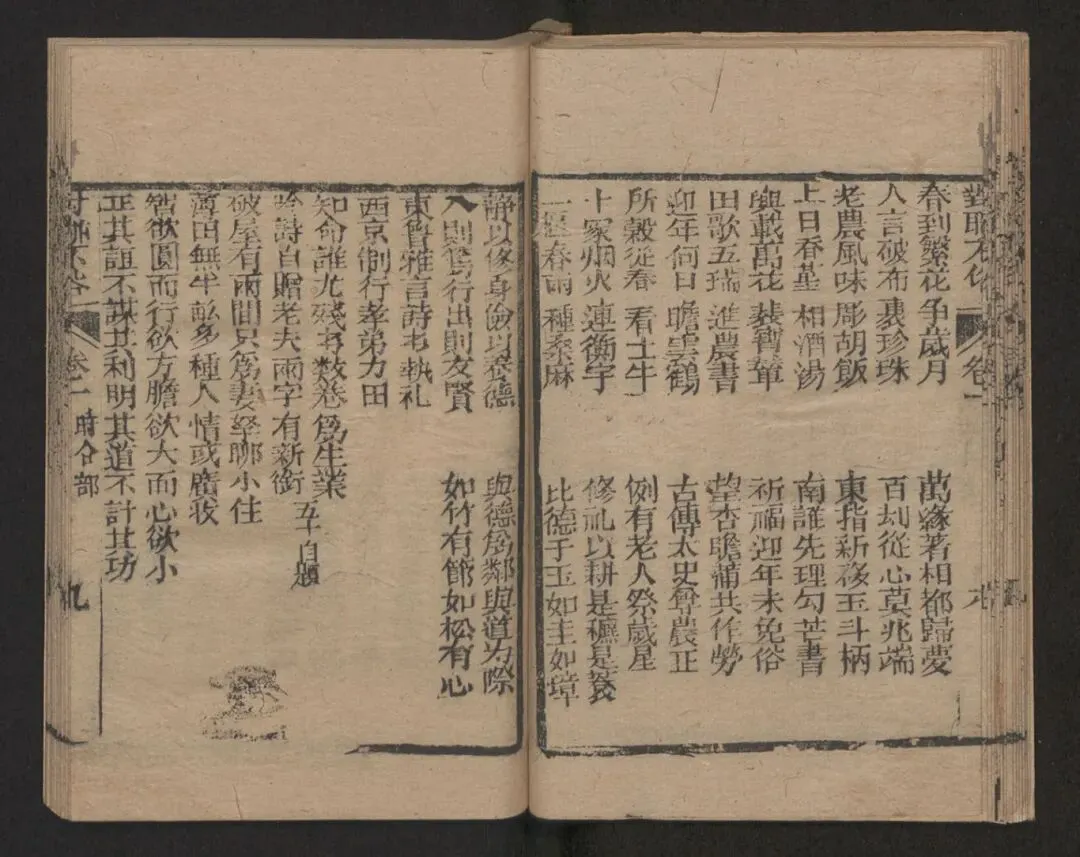 對聯不俗 卷一
春到繁花争歲月 萬緣著相都歸夢
人言破布裹珍珠 百刦從心莫兆端
老農風味彫胡飯 東指新移玉斗柄
上日春蔂相酒湯 南誰先理勾芒書
與載萬花裝寶華 祈福迎年未免俗
田歌五瑞進農書 望杏瞻蒲共作勞
迎年何日瞻雲鶴 古傳太史尊農正
所穀從春看土牛 例有老人祭歲星
十家烟火連衡宇 修礼以耕是穮是蓘
一犁春雨種桑麻 比德于玉如圭如璋
靜以修身儉以養德 與德爲鄰與道为際
入則篤行出則友賢 如竹有節如松有心
東魯雅言詩书執礼
西京制行孝弟力田
知命誰尤殘书数卷爲生業
吟詩自贈老夫兩字有新銜 五十自題
破屋有兩間只爲妻孥聊小住
薄田無半畝多種人情或廣收
智欲圓而行欲方膽欲大而心欲小
正其誼不謀其利明其道不計其功
對聯不俗 卷一 時令部 九